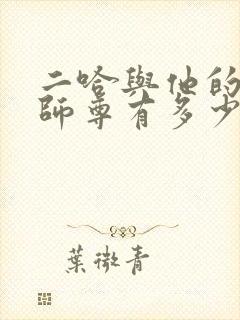 二哈與他的
師尊有多少
葉微青